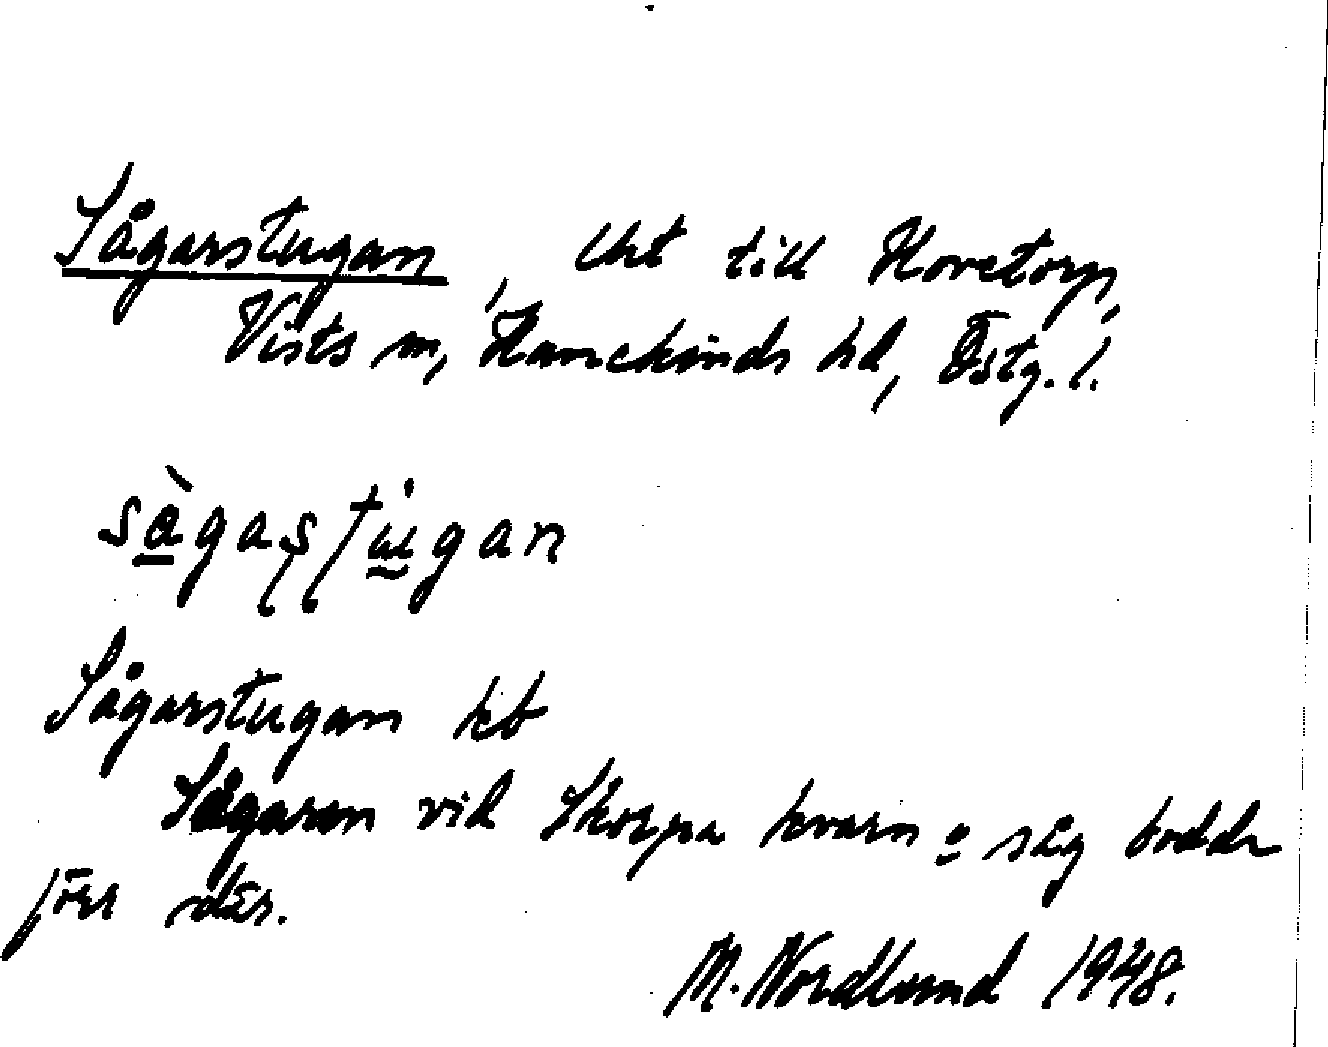 Sågarstugan, lht till Hovetorp,
Vists sn, Hanekinds hd, Östg. l.
sàgaʂʈugan
Sågarstugan kb
Sågaren vid Skorpa kvarn o såg bodde
förr där.
M. Nordlund 1948.